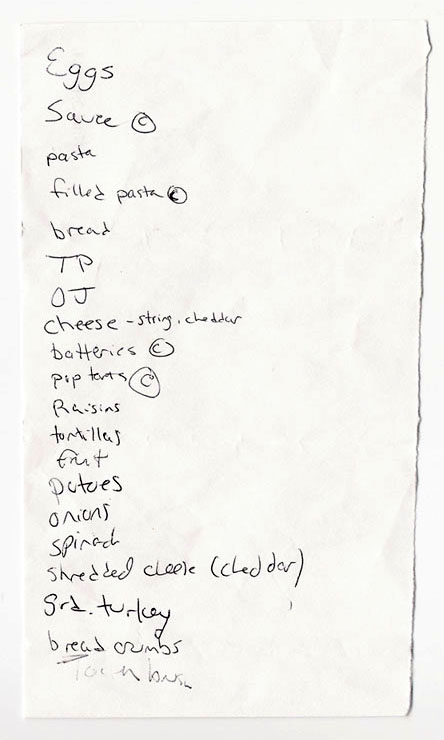 Eggs
Sauce ©
pasta
filled pasta ©
bread
TP
OJ
cheese - string, cheddar
batteries ©
pop tarts ©
Raisins
tortillas
fruit
potatoes
onions
spinach
shredded cheese (cheddar)
grd. turkey
bread crumbs
Toothbrush